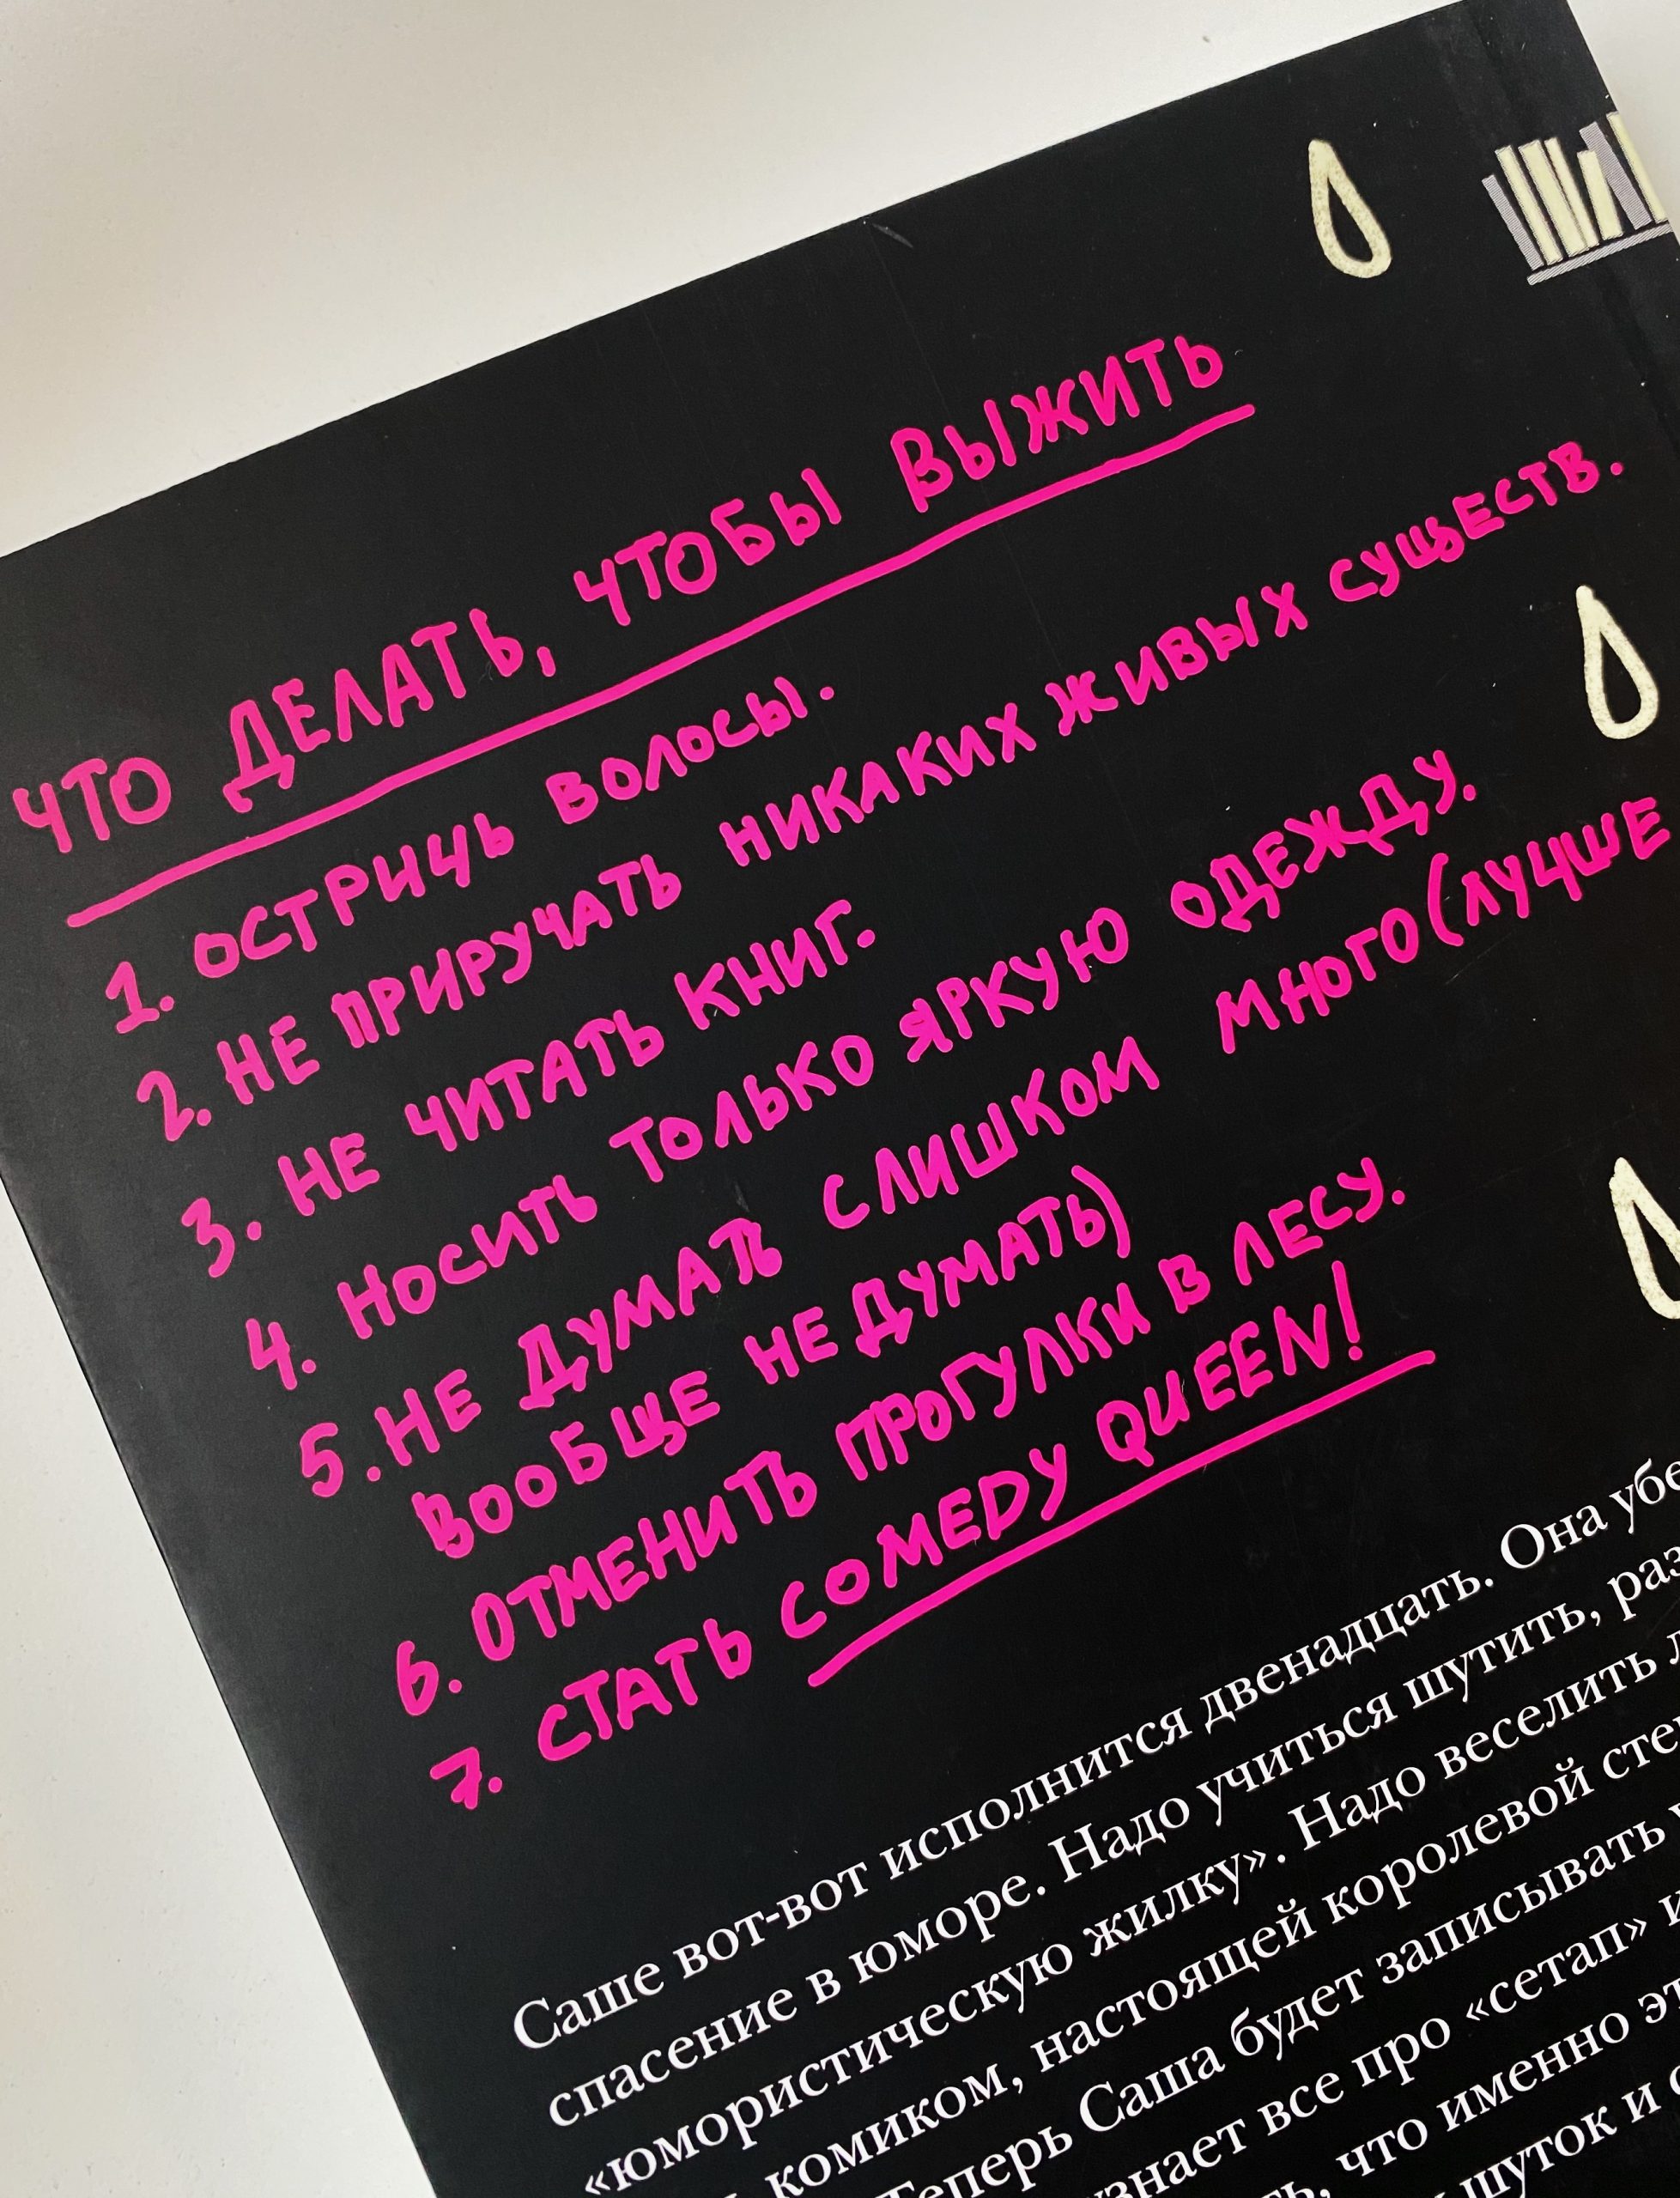 ЧТО ДЕЛАТЬ, ЧТОБЫ ВЫЖИТЬ
1. ОСТРИЧЬ ВОЛОСЫ.
2. НЕ ПРИРУЧАТЬ НИКАКИХ ЖИВЫХ СУЩЕСТВ.
3. НЕ ЧИТАТЬ КНИГ.
4. НОСИТЬ ТОЛЬКО ЯРКУЮ ОДЕЖДУ.
5. НЕ ДУМАТЬ СЛИШКОМ МНОГО (ЛУЧШЕ
ВООБЩЕ НЕ ДУМАТЬ)
6. ОТМЕНИТЬ ПРОГУЛКИ В ЛЕСУ.
7. СТАТЬ COMEDY QUEEN!
Саше вот-вот исполнится двенадцать. Она
спасение в юморе. Надо учиться шутить,
«юмористическую жилку». Надо веселить
комиком, настоящей королевой
Теперь Саша будет записывать
все про «сетап»
что именно
шуток и